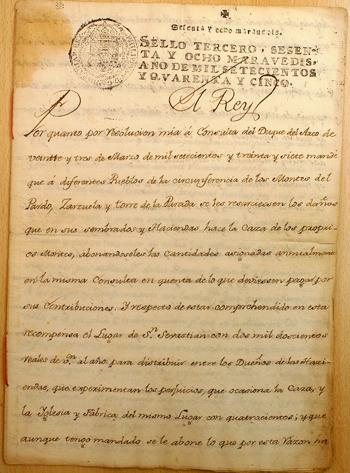 Sesenta y ocho maravedis.
SELLO TERCERO, SESEN-
TA Y OCHO MARAVEDIS,
AÑO DE MIL SETECIENTOS
Y QVARENTA Y CINCO.
El Rey
Por quanto por resolucion mia á Consulta del Duque del Arco de
veintte y tres de Marzo de mil setecientos y treinta y siete mandé
que á diferentes Pueblos de la circunferencia de los Montes del
Pardo, Zarzuela y torre de la Parada se les resarciesen los daños
que en sus sembrados y Haciendas hace la Caza de los propri-
os Montes, abonandoseles las Cantidades asignadas annualmente
en la misma Consulta en quenta de lo que deviesen pagar por
sus Contribuciones. Y respecto de estar comprehendido en esta
recompensa el Lugar de Sn. Sebastian con dos mil doscientos
reales de vn. al año para distribuir entre los Dueños de las Hazi-
endas, que experimentan los perjuicios, que ocasiona la Caza, y
la Iglesia y Fabrica del mismo Lugar con quatrocientos; y que
aunque tengo mandado se le abone lo que por esta razon ha